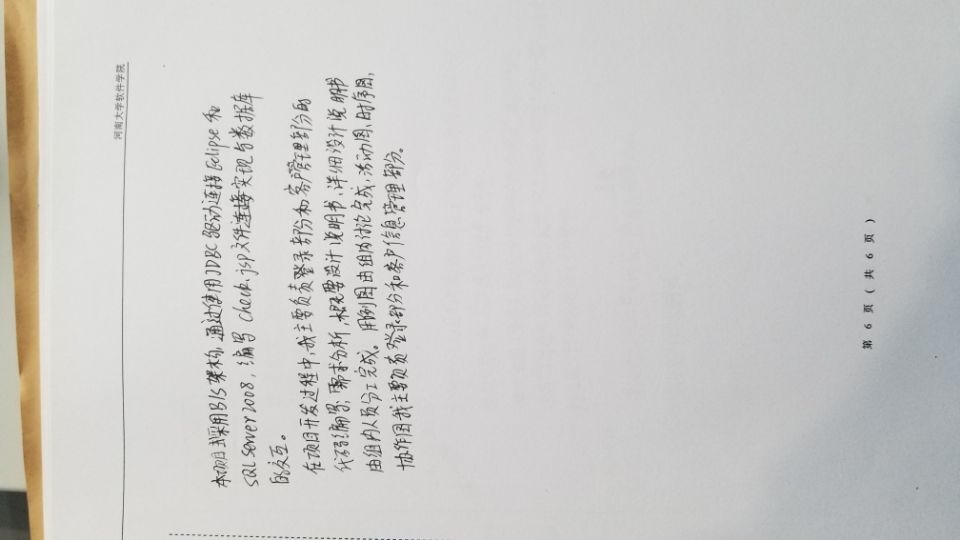 河南大学软件学院
本项目采用B/S架构,通过使用JDBC驱动连接Eclipse和
SQL Server2008,编写check.jsp文件连接实现与数据库
的交互。
在项目开发过程中,我主要负责登录部分和客户管理部分的
代码编写;需求分析,概要设计说明书,详细设计说明书
由组内人员分工完成。用例图由组内讨论完成,活动图、时序图,
协作图我主要负责登录部分和客户信息管理部分。
第 6 页 ( 共 6 页 )